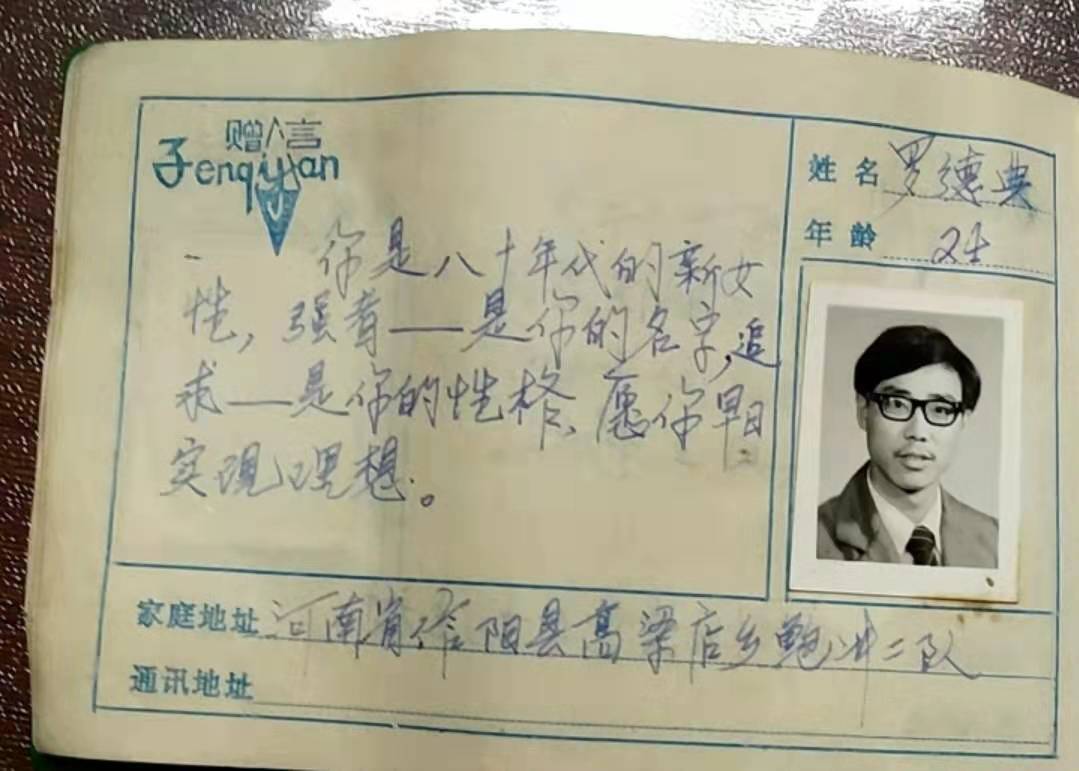 赠人言
Zenqiyan
你是八十年代的新女
性，强者——是你的名字，追
求——是你的性格、愿你早日
实现理想。
姓名 罗德典
年龄
家庭地址 河南省信阳县高梁店乡鲍冲二队
通讯地址